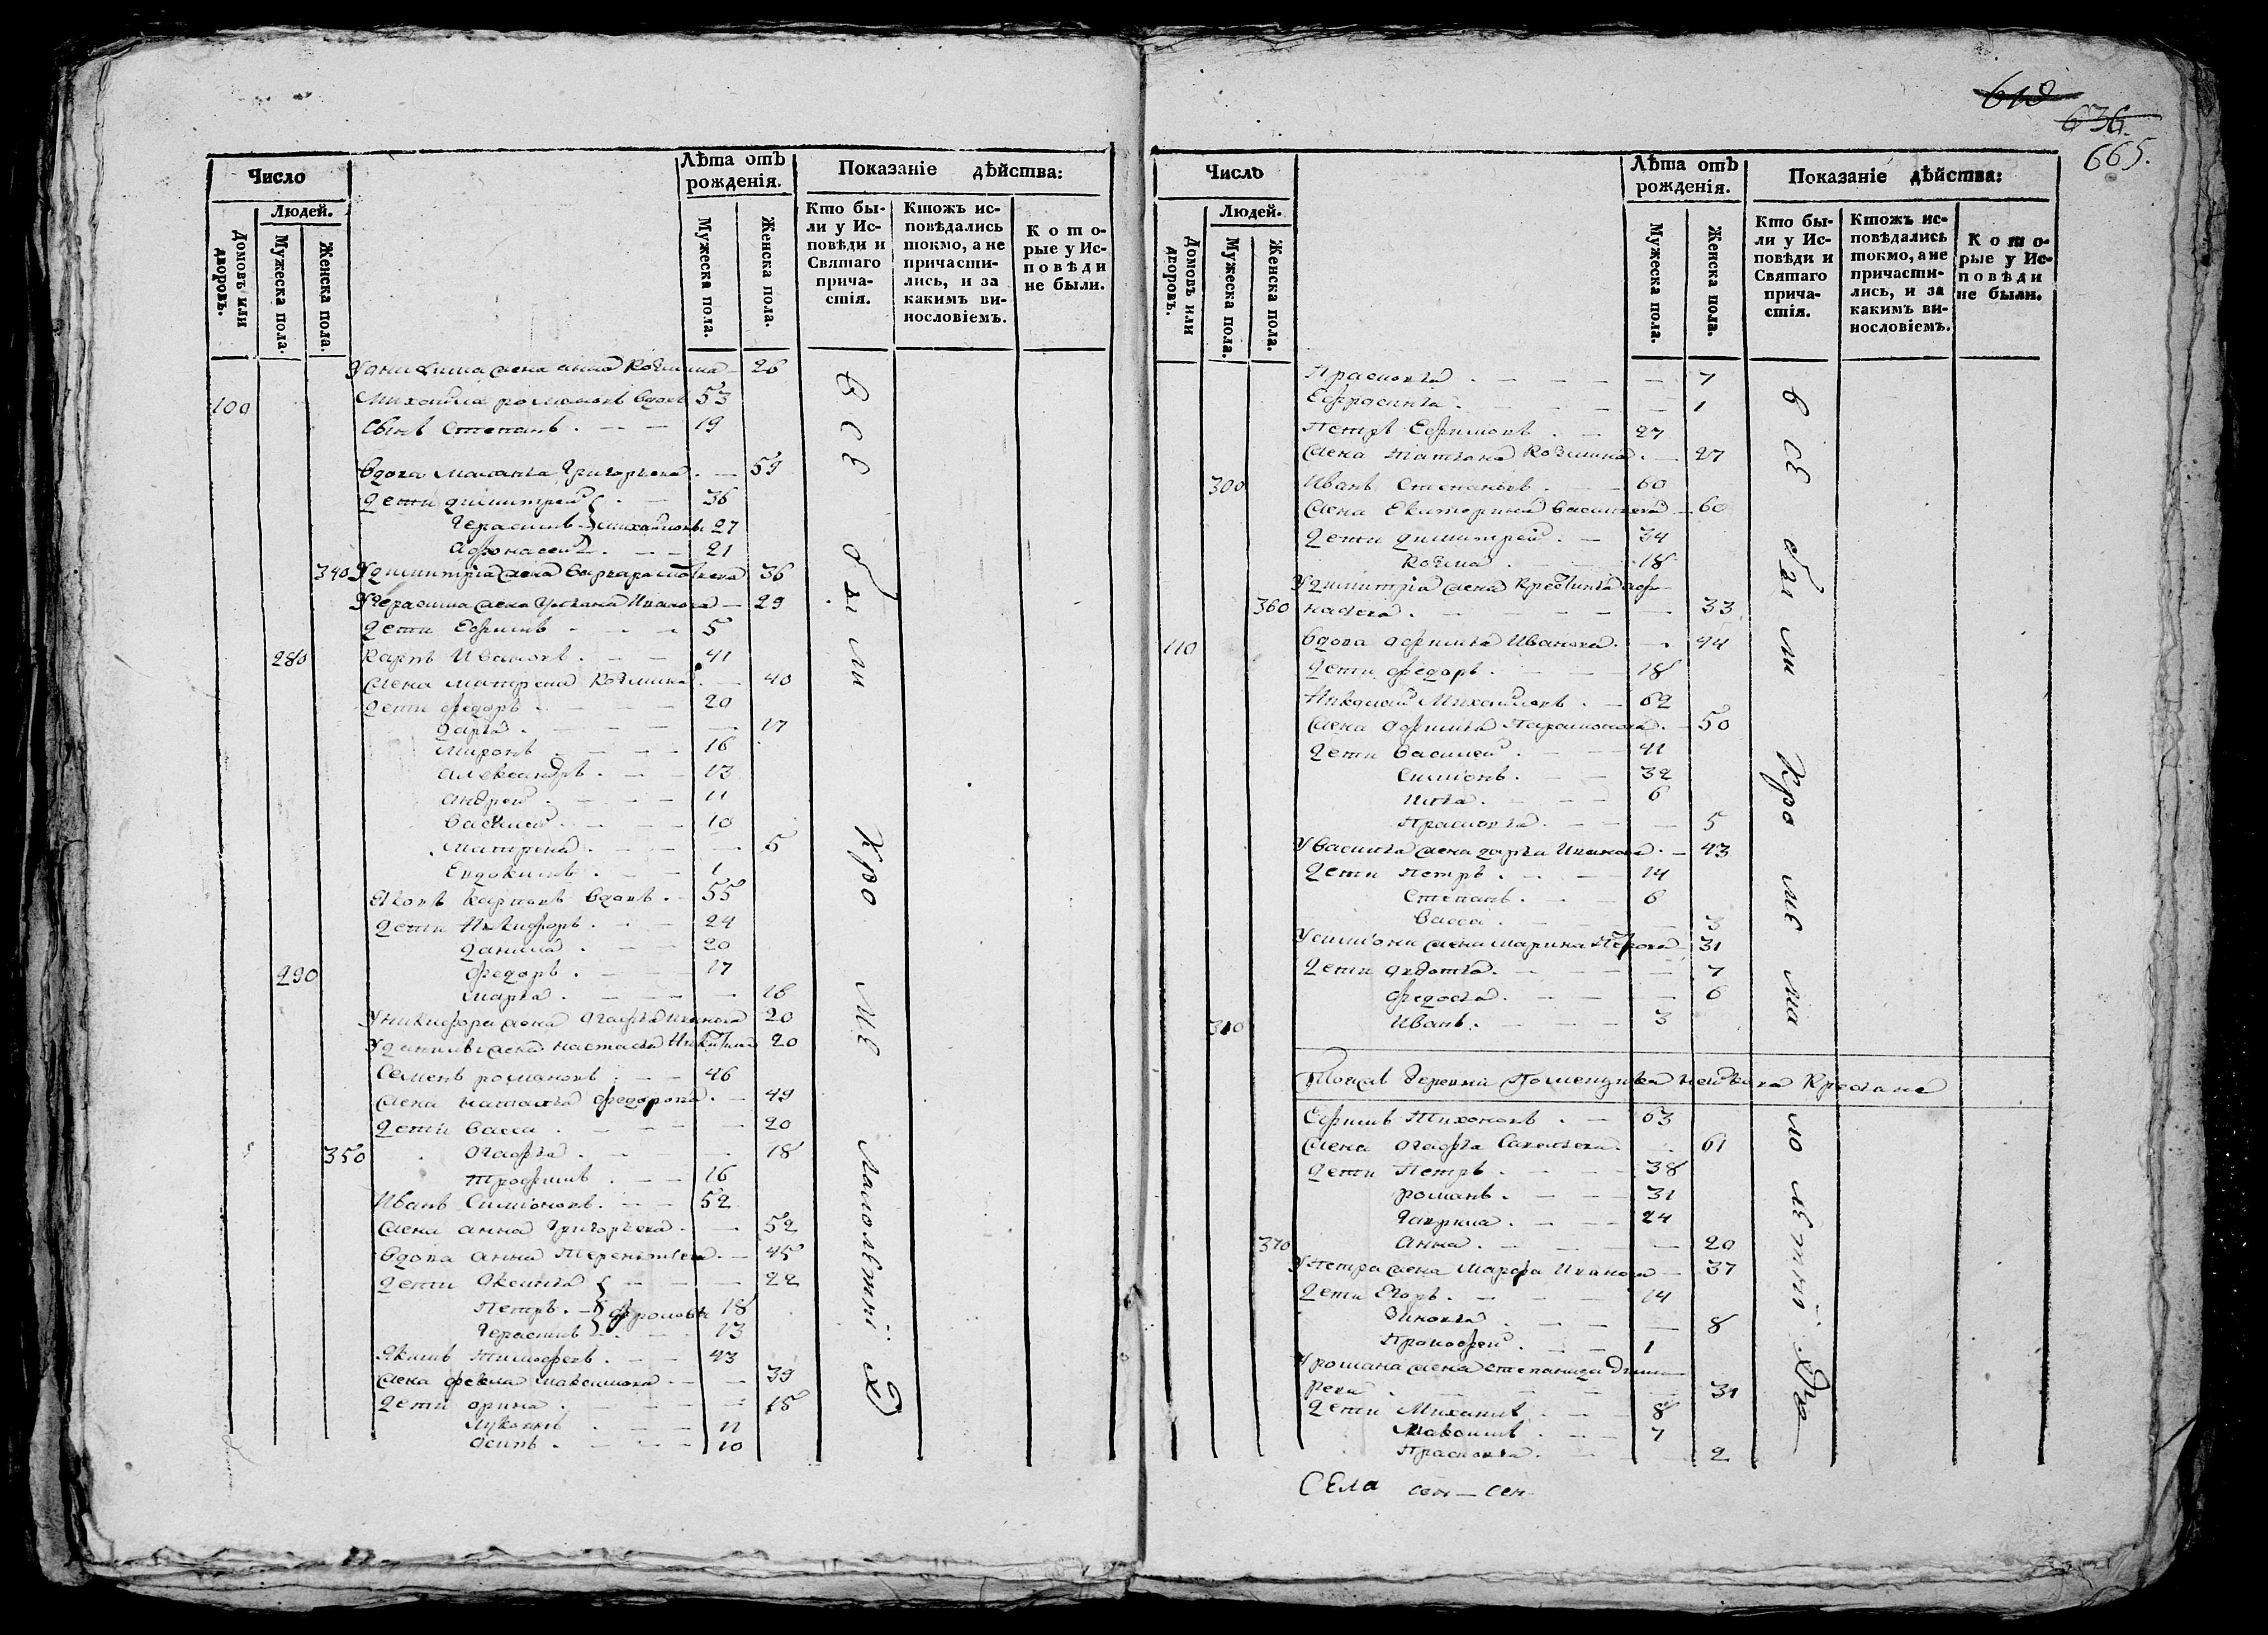 Число
Лѣта отъ рожденія.
Показаніе дѣйства:
Людей.
Домовъ или дворовъ.
Мужеска пола.
Женска пола.
Мужеска пола.
Женска пола.
Кто бы-
ли у Ис-
повѣди и
Святаго
прича-
стія.
Ктожъ ис-
повѣдались
токмо, а не
причасти-
лись, и за
какимъ ви-
нословіемъ.
Кото-
рые у Ис-
повѣди
не были.
жена анна Козмина 26
100 Михайла романовъ вдовъ 53
Сынъ Степанъ 19
Вдова Маланья Григорьева 59
дети димитрей 36
Герасимъ Михайловы 27
Афонасей 21
340 У димитрія жена варвара 36
У Герасима жена Ульяна Иванова 29
дети Ефимъ 5
280 Карпъ Ивановъ 41
жена матрена Козмина 40
дети федоръ 20
дарья 17
Миронъ 16
александръ 13
андрей 11
василей 10
Матрена 5
Евдокимъ 1
Яковъ Карповъ вдовъ 55
дети Никифоръ 24
данила 20
290 федоръ 17
марья 16
У никифора жена Агафья иванова 20
У данилы жена настасья Никитина 20
Семенъ романовъ 46
жена наталья федорова 49
дети васса 20
350 Агафья 18
Трофимъ 16
Иванъ Симіоновъ 52
жена анна Григорьева 52
вдова анна Терентьева 45
дети Аксинья 22
Петръ фроловы 18
Герасимъ 13
Якимъ Тимофеевъ 43
жена фекла Максимова 39
дети орина 15
Лукьянъ 11
Осипъ 10
всѣ были кромѣ малолѣтній
613
636.
665.
Число
Лѣта отъ рожденія.
Показаніе дѣйства:
Людей.
Домовъ или дворовъ.
Мужеска пола.
Женска пола.
Мужеска пола.
Женска пола.
Кто бы-
ли у Ис-
повѣди и
Святаго
прича-
стія.
Ктожъ ис-
повѣдались
токмо, а не
причасти-
лись, и за
какимъ ви-
нословіемъ.
Кото-
рые у Ис-
повѣди
не были.
Прасковья 7
Ефросинья 1
Петръ Ефимовъ 27
жена Татьяна Козмина 27
300 Иванъ Степановъ 60
жена Екатерина васильева 60
дети димитрей 34
Козма 18
У димитрія жена Кресинья афо-
360 насьева 33
110 вдова афимья Иванова 44
дети федоръ 18
Николай Михайловъ 62
жена афимья Парамонова 50
дети василей 41
Симіонъ 32
Илья 6
Прасковья 5
У василья жена дарья Иванова 43
дети петръ 14
Степанъ 6
васса 3
У симіона жена марина 31
дети авдотья 7
федосья 6
310 Иванъ 3
Тойжъ деревни Помещика Крестьяне
Ефимъ Тихоновъ 63
жена агафья Савельева 61
дети Петръ 38
романъ 31
Гаврила 24
370 Анна 20
У Петра жена Марфа Иванова 37
дети Егоръ 14
Зиновья 8
Прокофей 1
У романа жена степанида Дими-
реви 31
дети Михаилъ 8
Максимъ 7
Прасковья 2
всѣ были кромѣ малолѣтній
Села сен – сен